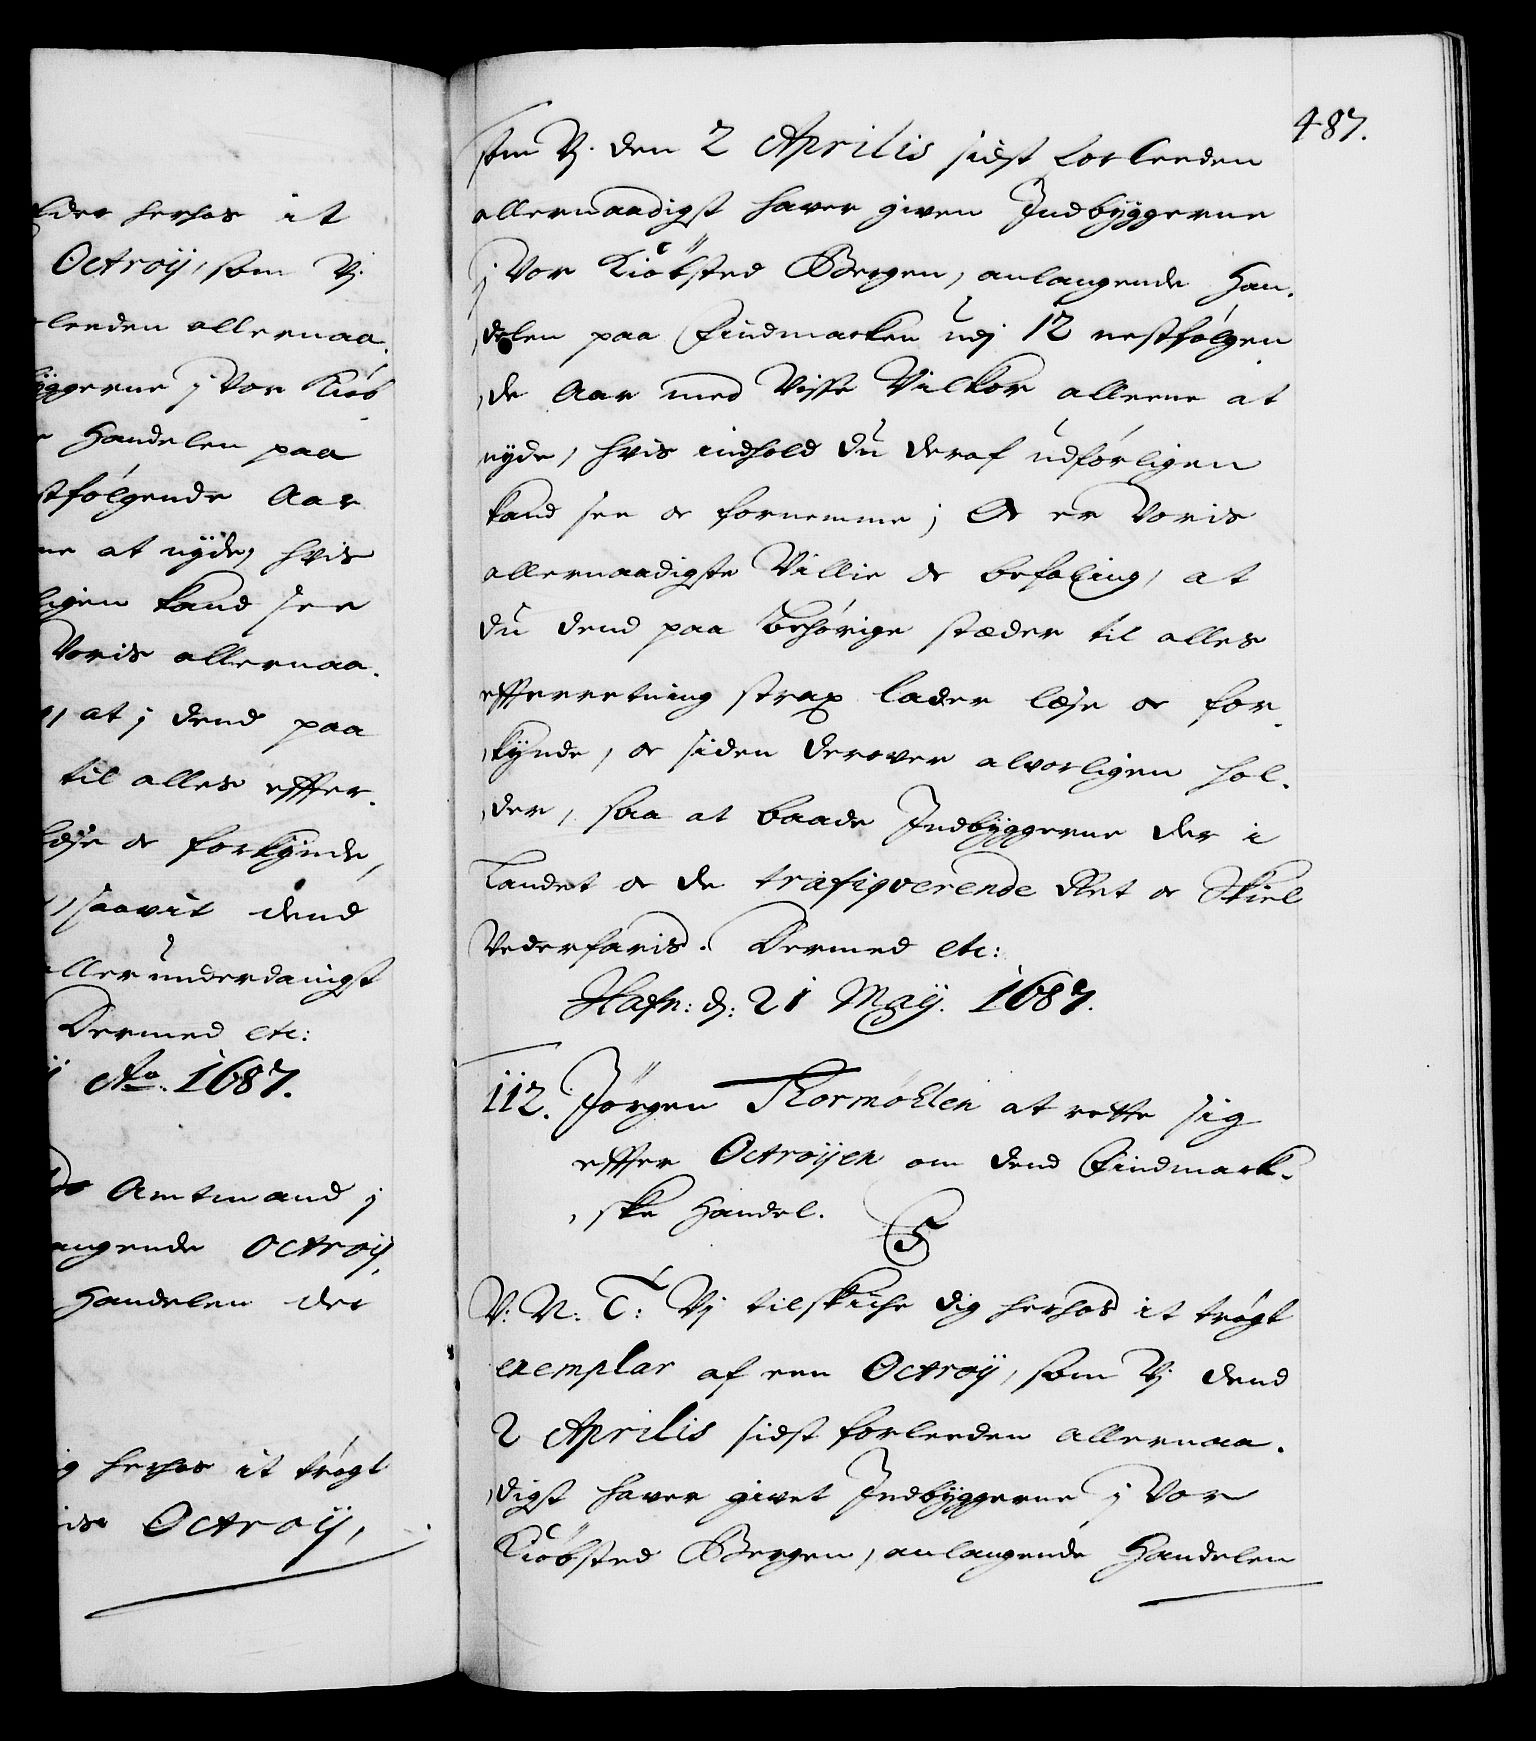 ider herhos it
Octroÿ, som Vj
leeden allernaa-
byggerne j Vor Kiöb
Handelen paa
stfølgende Aar
ne at nÿde, hvis
ligen kand see
Voris allernaa-
at j dend paa
til alles effter-
læse oc forkÿnde,
saavit dend
allerunderdanigst
Dermed etc:
Ao. 1687.
Amtmand j
angende Octroÿ
Handelen der
herhos it trögt
Octroÿ,
487.
som Vj den 2 Aprilis sidst forleeden
allernaadigst haver given Indbÿggerne
j Vor Kiöbsted Bergen, anlangende Han-
delen paa Findmarken udj 12 nestfølgen
de Aar med Visse Vilkor alleene at
nyde, hvis indhold du deraf udførligen
kand see oc fornemme; Oc er Voris
allernaadigste Villie oc befaling, at
du dend paa behörige stæder til alles
effterretning strax lader læse oc for-
kÿnde, oc siden derover alvorligen hol-
der, saa at baade Indbÿggerne der i
Landet oc de trafiqverende Ret oc Skiel
Vederfaris. Dermed etc:
Hafn: d: 21 Maÿ. 1687.
112. Jörgen Thormöhlen at rette sig
effter Octroÿen om dend Findmark-
ske Handel.
V: N: T: Vj tilskicke dig herhos it trögt
exemplar af een Octroÿ, som Vj dend
2 Aprilis sidst forleeden allernaa-
digst haver givet Indbÿggerne j Vor
Kiöbsted Bergen, anlangende Handelen